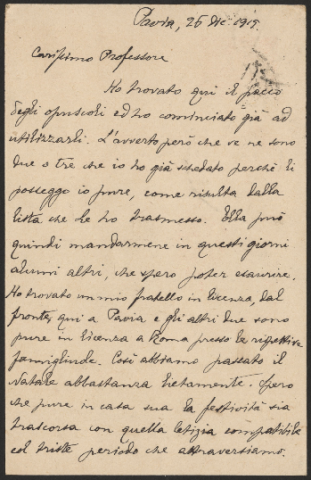 Pavia, 26 Dic 1915
Carissimo Professore
Ho trovato qui il pacco
degli opuscoli ed ho cominciato già ad
utilizzarli. L'avverto però che ve ne sono
due o tre che io ho già schedato perchè li
posseggo io pure, come risulta dalla
lista che le ho trasmesso. Ella può
quindi mandarmene in questi giorni
alcuni altri, che spero poter esaurire.
Ho trovato un mio fratello in licenza, dal
fronte, qui a Pavia e gli altri due sono
pure in licenza a Roma presso le rispettive
famiglie. Così abbiamo passato il
Natale abbastanza lietamente. Spero
che pure in casa sua la festività sia
trascorsa con quella letizia compatibile
col triste periodo che attraversiamo.